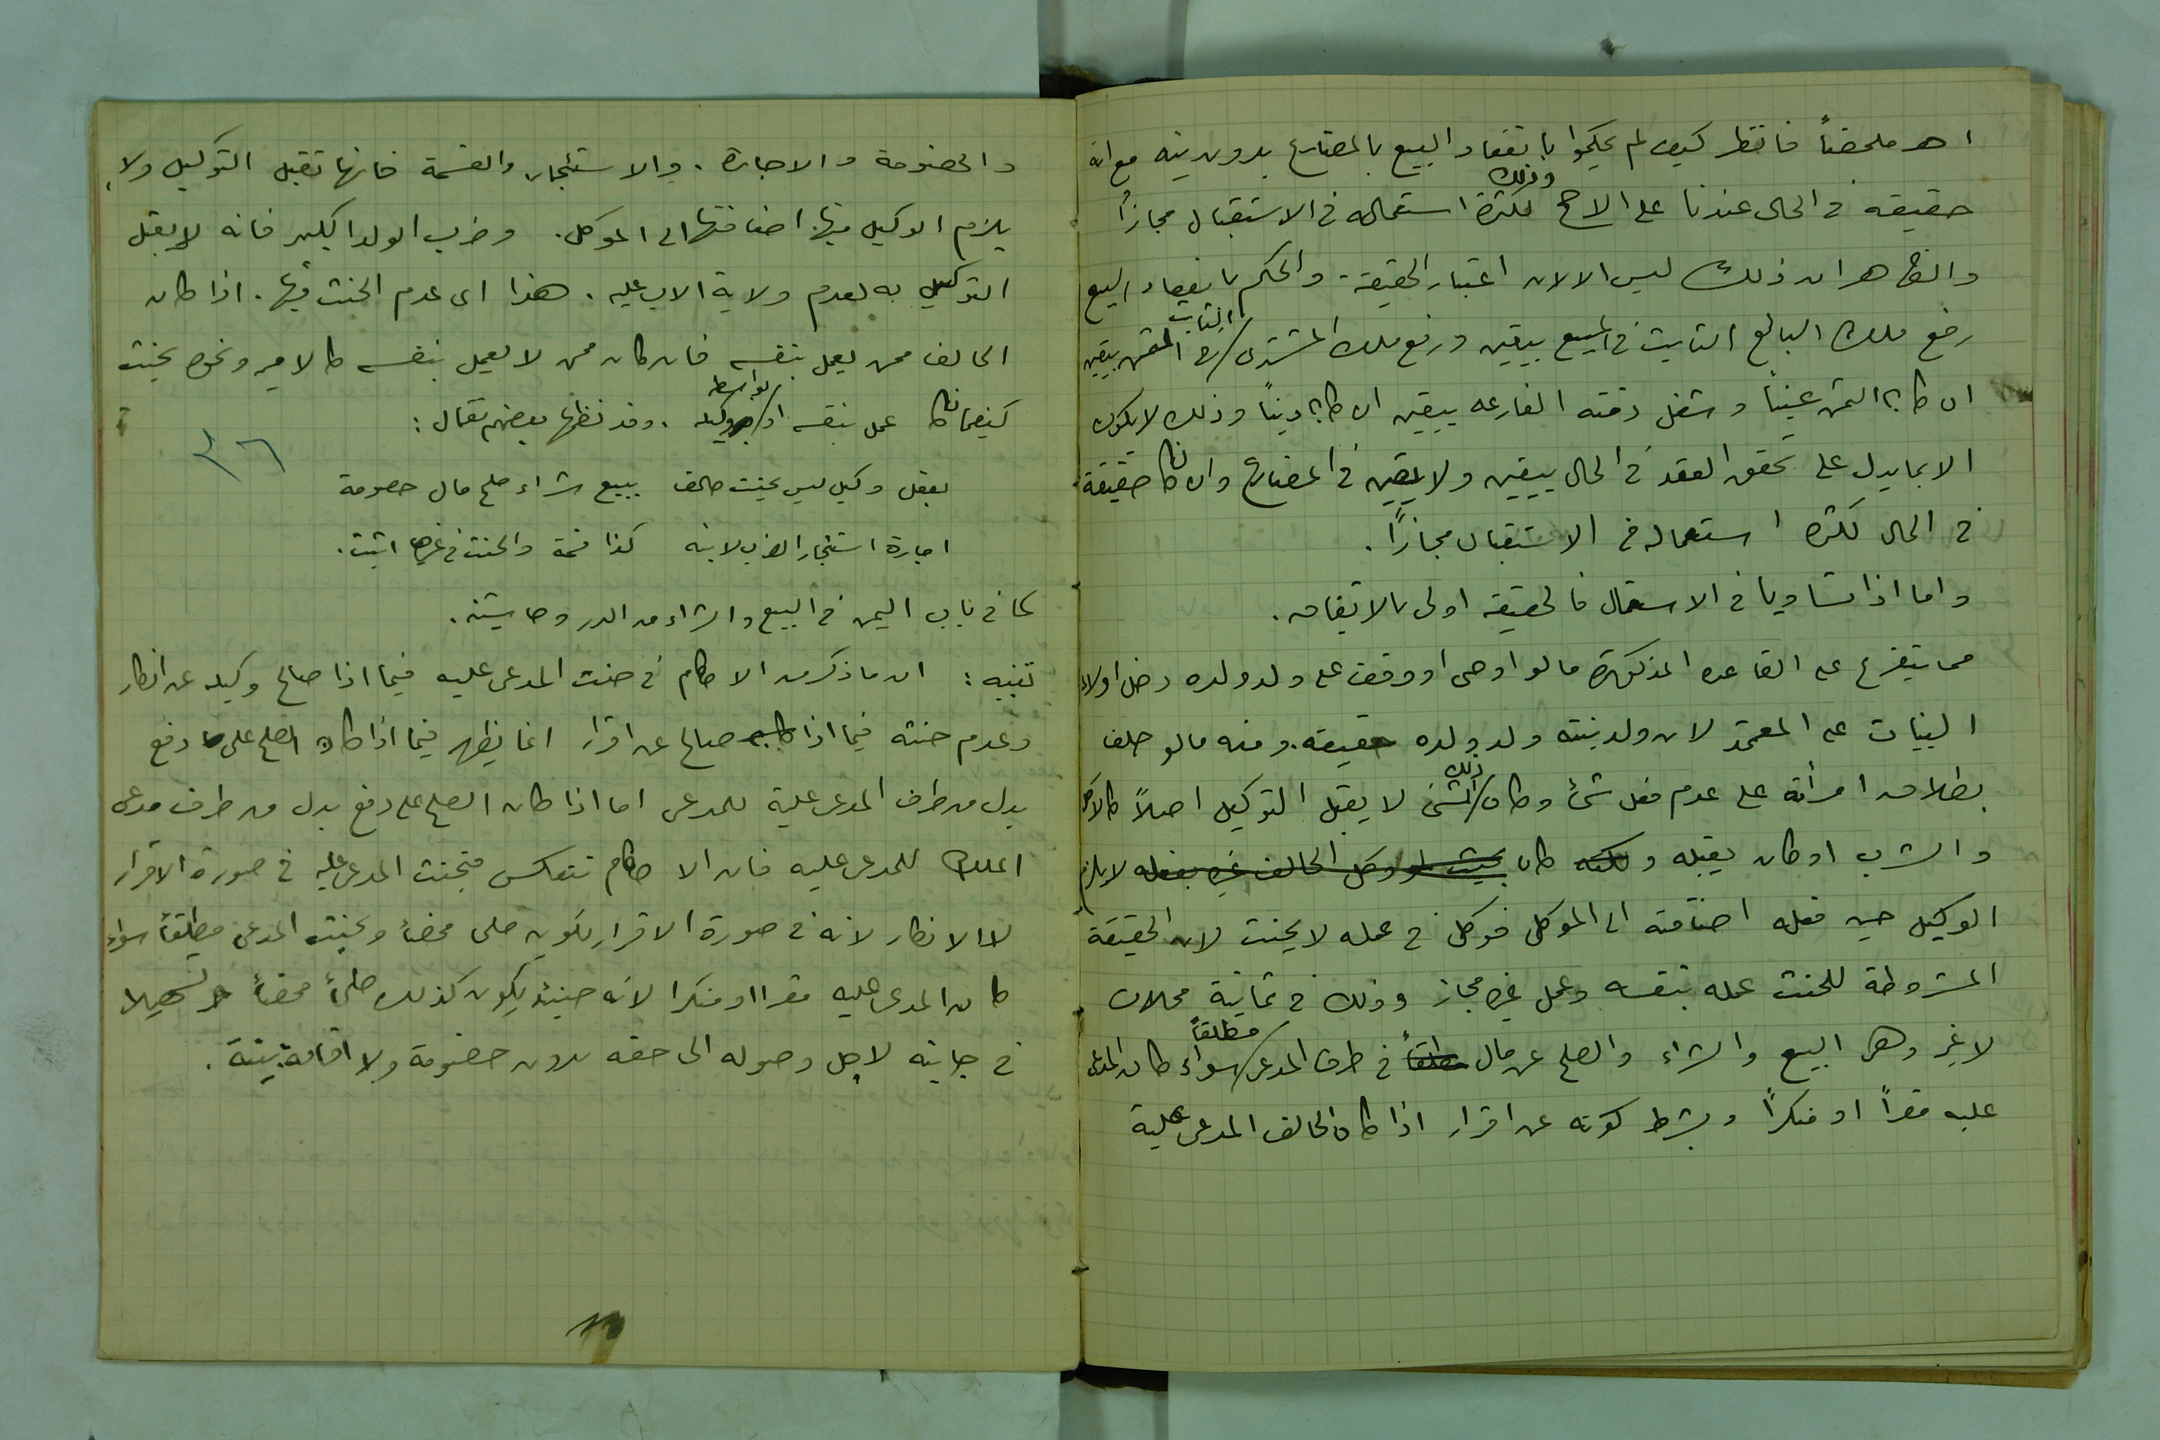 اهـ ملخصاً فانظر كيف لم يحكموا بانعقاد البيع بالمضارع بدون نية مع انه
حقيقة في الحال عندنا على الاصح وذلك لكثرة استعماله في الاستقبال مجازاً
والظاهر ان ذلك ليس الا لان اعتبار الحقيقة والحكم بانعقاد البيع
رفع ملك البائع الثابت في المبيع بيقين ورفع ملك المشتري الثابت في الثمن بيقين
ان كان الثمن عيناً وشغل ذمته الفارغه بيقين ان كان ديناً وذلك لا يكون
الا بما يدل على تحقق العقد في الحال بيقين ولا يقين في المضارع وان كان حقيقة
في الحال لكثرة استعماله في الاستقبال مجازاً .
واما اذا تساويا في الاستعمال فالحقيقة اولى بالاتفاق .
مما يتفرع على القاعده المذكورة ما لو اوصى او وقف على ولد ولده دخل اولاد
البنات على المعتمد لان ولد بنته ولد ولده حقيقة. ومنه ما لو حلف
بطلاق امرأته على عدم فعل شئ وكان ذلك الشئ لا يقبل التوكيل اصلاً كالاكل
والشرب او كان يقبله ولكنه كان بحيث لو وكل الحالف غيره بفعله لا يلزم
الوكيل حين فعله اضافته الى الموكل فوكل في عمله لا يحنث لان الحقيقة
المشروطة للحنث عمله بنفسه وعمل غيره مجاز وذلك في ثمانية محلات
لا غير وهي البيع والشراء والصلح عن مال مطلقاً في طرف المدعي مطلقاً سواء كان المدعى
عليه مقراً او منكراً وبشرط كونه عن اقرار اذا كان الحالف المدعى عليه
والخصومة والاجارة . والاستئجار والقسمة فانها تقبل التوكيل ولا
يلزم الوكيل فيها اضافتها الى الموكل . وضرب الولد الكبير فانه لا يقبل
التوكيل به لعدم ولاية الاب عليه . هذا اى عدم الحنث فيها . اذا كان
الحالف ممن يعمل بنفسه فان كان ممن لا يعمل بنفسه كالامير ونحوه يحنث
كيفما كان عمل بنفسه او بواسطة وكيله . وقد نظمها بعضهم فقال :
٢٦
بفعل وكيل ليس يحنث حالف ببيع شراء صلح مال خصومة
اجارة استئجار الضرب لابنه كذا قسمة والحنث في غيرها اثبت .
كما في باب اليمين في البيع والشراء من الدرر وحاشيته .
تنبيه : ان ما ذكر من الاحكام في حنث المدعى عليه فيما اذا صالح وكيله عن انكار
وعدم حنثه فيما اذا صالح عن اقرار انما يظهر فيما اذا كان الصلح على دفع
بدل من طرف المدعى عليه للمدعي اما اذا كان الصلح على دفع بدل من طرف مدعي
الملك للمدعى عليه فان الاحكام تنعكس فيحنث المدعى عليه في صورة الاقرار
لا الانكار لانه في صورة الاقرار يكون صلحا محضاً ويحنث المدعي مطلقاً سواء
كان المدعى عليه مقرا او منكرا لانه حينئذ يكون كذلك صلحاً محضاً
في جانبه لاجل وصوله الى حقه بدون خصومة ولا اقامة بينة .